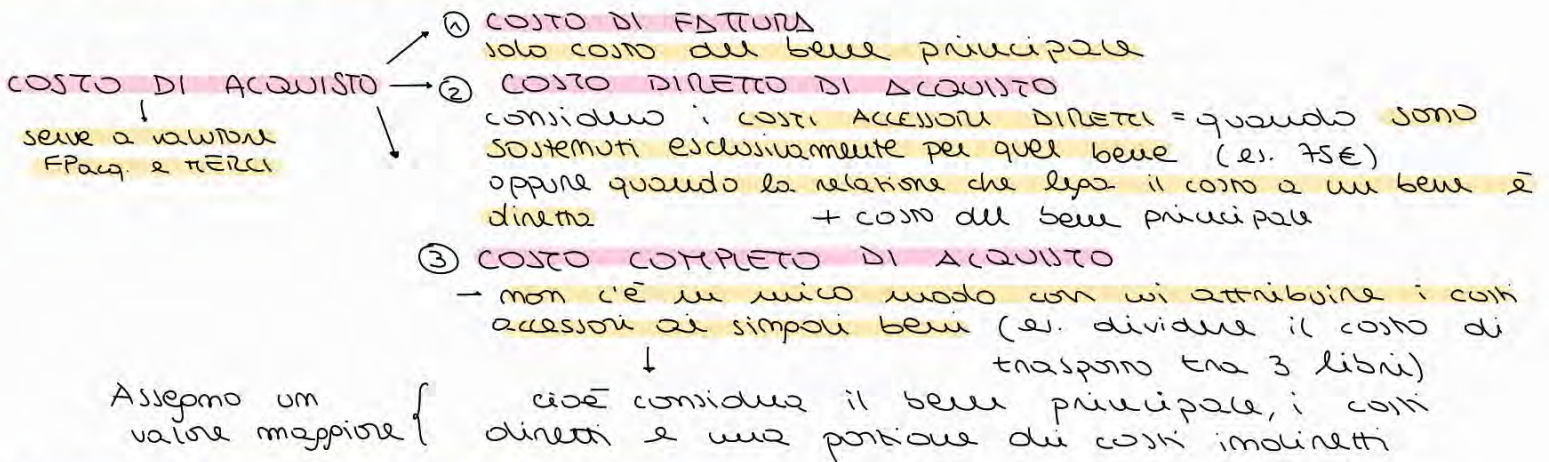 ① COSTO DI FATTURA
solo costo del bene principale
COSTO DI ACQUISTO → ② COSTO DIRETTO DI ACQUISTO
serve a valutare
FPacq. e MERCI
considero i COSTI ACCESSORI DIRETTI = quando sono
sostenuti esclusivamente per quel bene (es. 75€)
oppure quando la relazione che lega il costo a un bene è
diretta + costo del bene principale
③ COSTO COMPLETO DI ACQUISTO
→ non c'è un unico modo con cui attribuire i costi
accessori ai singoli beni (es. dividere il costo di
trasporto tra 3 libri)
Assegno un
valore maggiore {
cioè considera il bene principale, i costi
diretti e una portione dei costi indiretti